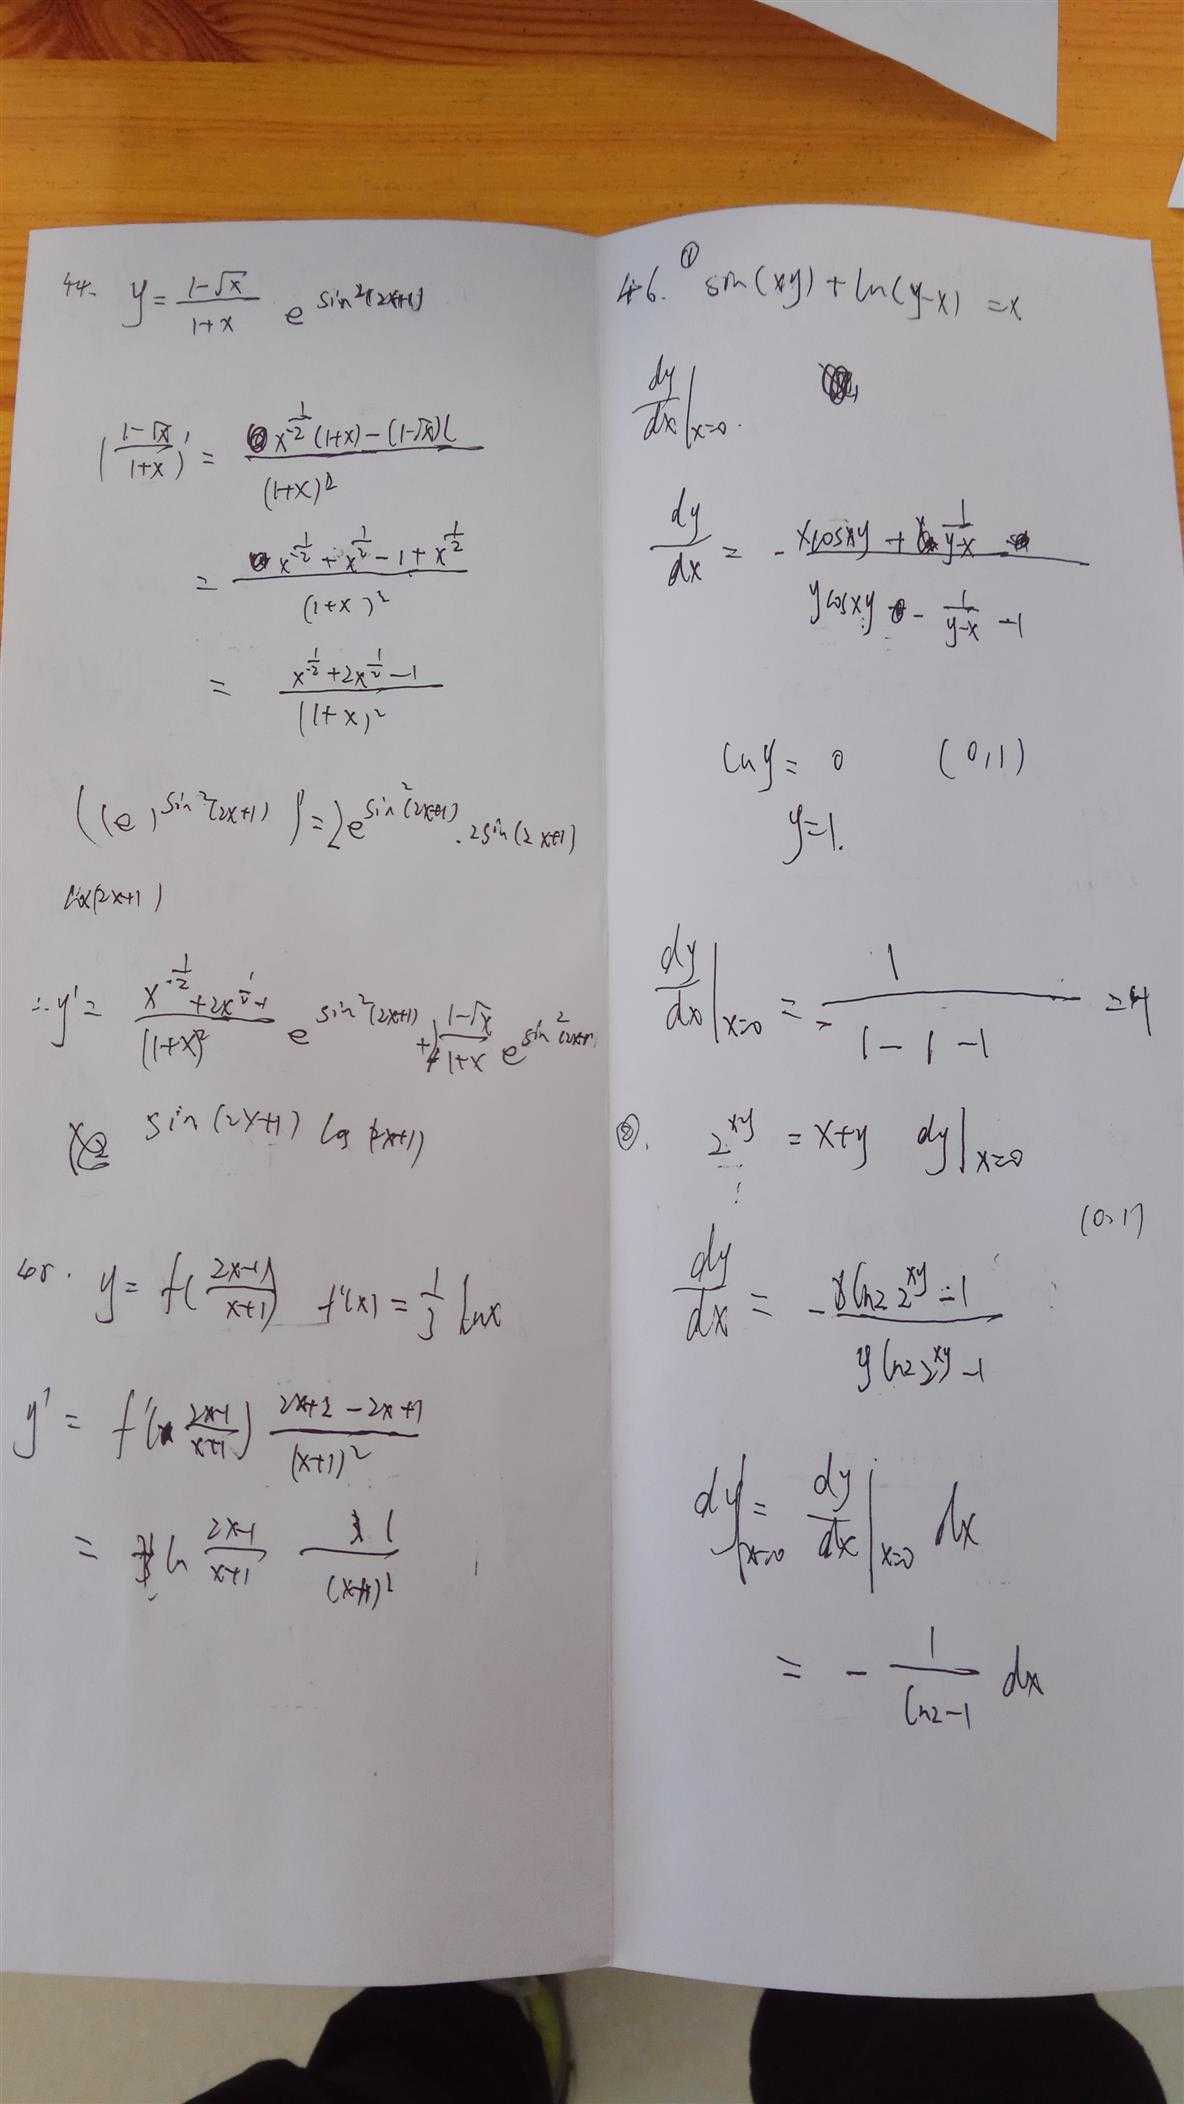 44. y = \frac{1-\sqrt{x}}{1+x} e^{sin^2(2x+1)}
(\frac{1-\sqrt{x}}{1+x})' = \frac{x^{-\frac{1}{2}}(1+x)-(1-\sqrt{x})(}{(1+x)^2}
= \frac{x^{-\frac{1}{2}}+x^{\frac{1}{2}}-1+x^{\frac{1}{2}}}{(1+x)^2}
= \frac{x^{-\frac{1}{2}}+2x^{\frac{1}{2}}-1}{(1+x)^2}
((e)^{sin^2(2x+1)})' = 2e^{sin^2(2x+1)} . 2sin(2x+1)
cos(2x+1)
∴ y' = \frac{x^{-\frac{1}{2}}+2x^{\frac{1}{2}}-1}{(1+x)^2} e^{sin^2(2x+1)} + 4\frac{1-\sqrt{x}}{1+x} e^{sin^2(2x+1)}
sin(2x+1) cos(2x+1)
45. y = f(\frac{2x-1}{x+1}) f'(x) = \frac{1}{3} lnx
y' = f'(\frac{2x-1}{x+1}) \frac{2x+2-2x+1}{(x+1)^2}
= ln \frac{2x-1}{x+1} \frac{1}{(x+1)^2}
46. ① sin(xy)+ln(y-x) = x
\frac{dy}{dx}|_{x=0}.
\frac{dy}{dx} = -\frac{xcosxy + \frac{1}{y-x}}{ycosxy - \frac{1}{y-x} -1}
lny = 0 (0,1)
y=1.
\frac{dy}{dx}|_{x=0} = -\frac{1}{1-1-1} =
②. 2^{xy} = x+y dy|_{x=0}
(0,1)
\frac{dy}{dx} = -\frac{xln2 2^{xy} -1}{yln2 2^{xy} -1}
dy|_{x=0} = \frac{dy}{dx}|_{x=0} dx
= -\frac{1}{ln2-1} dx